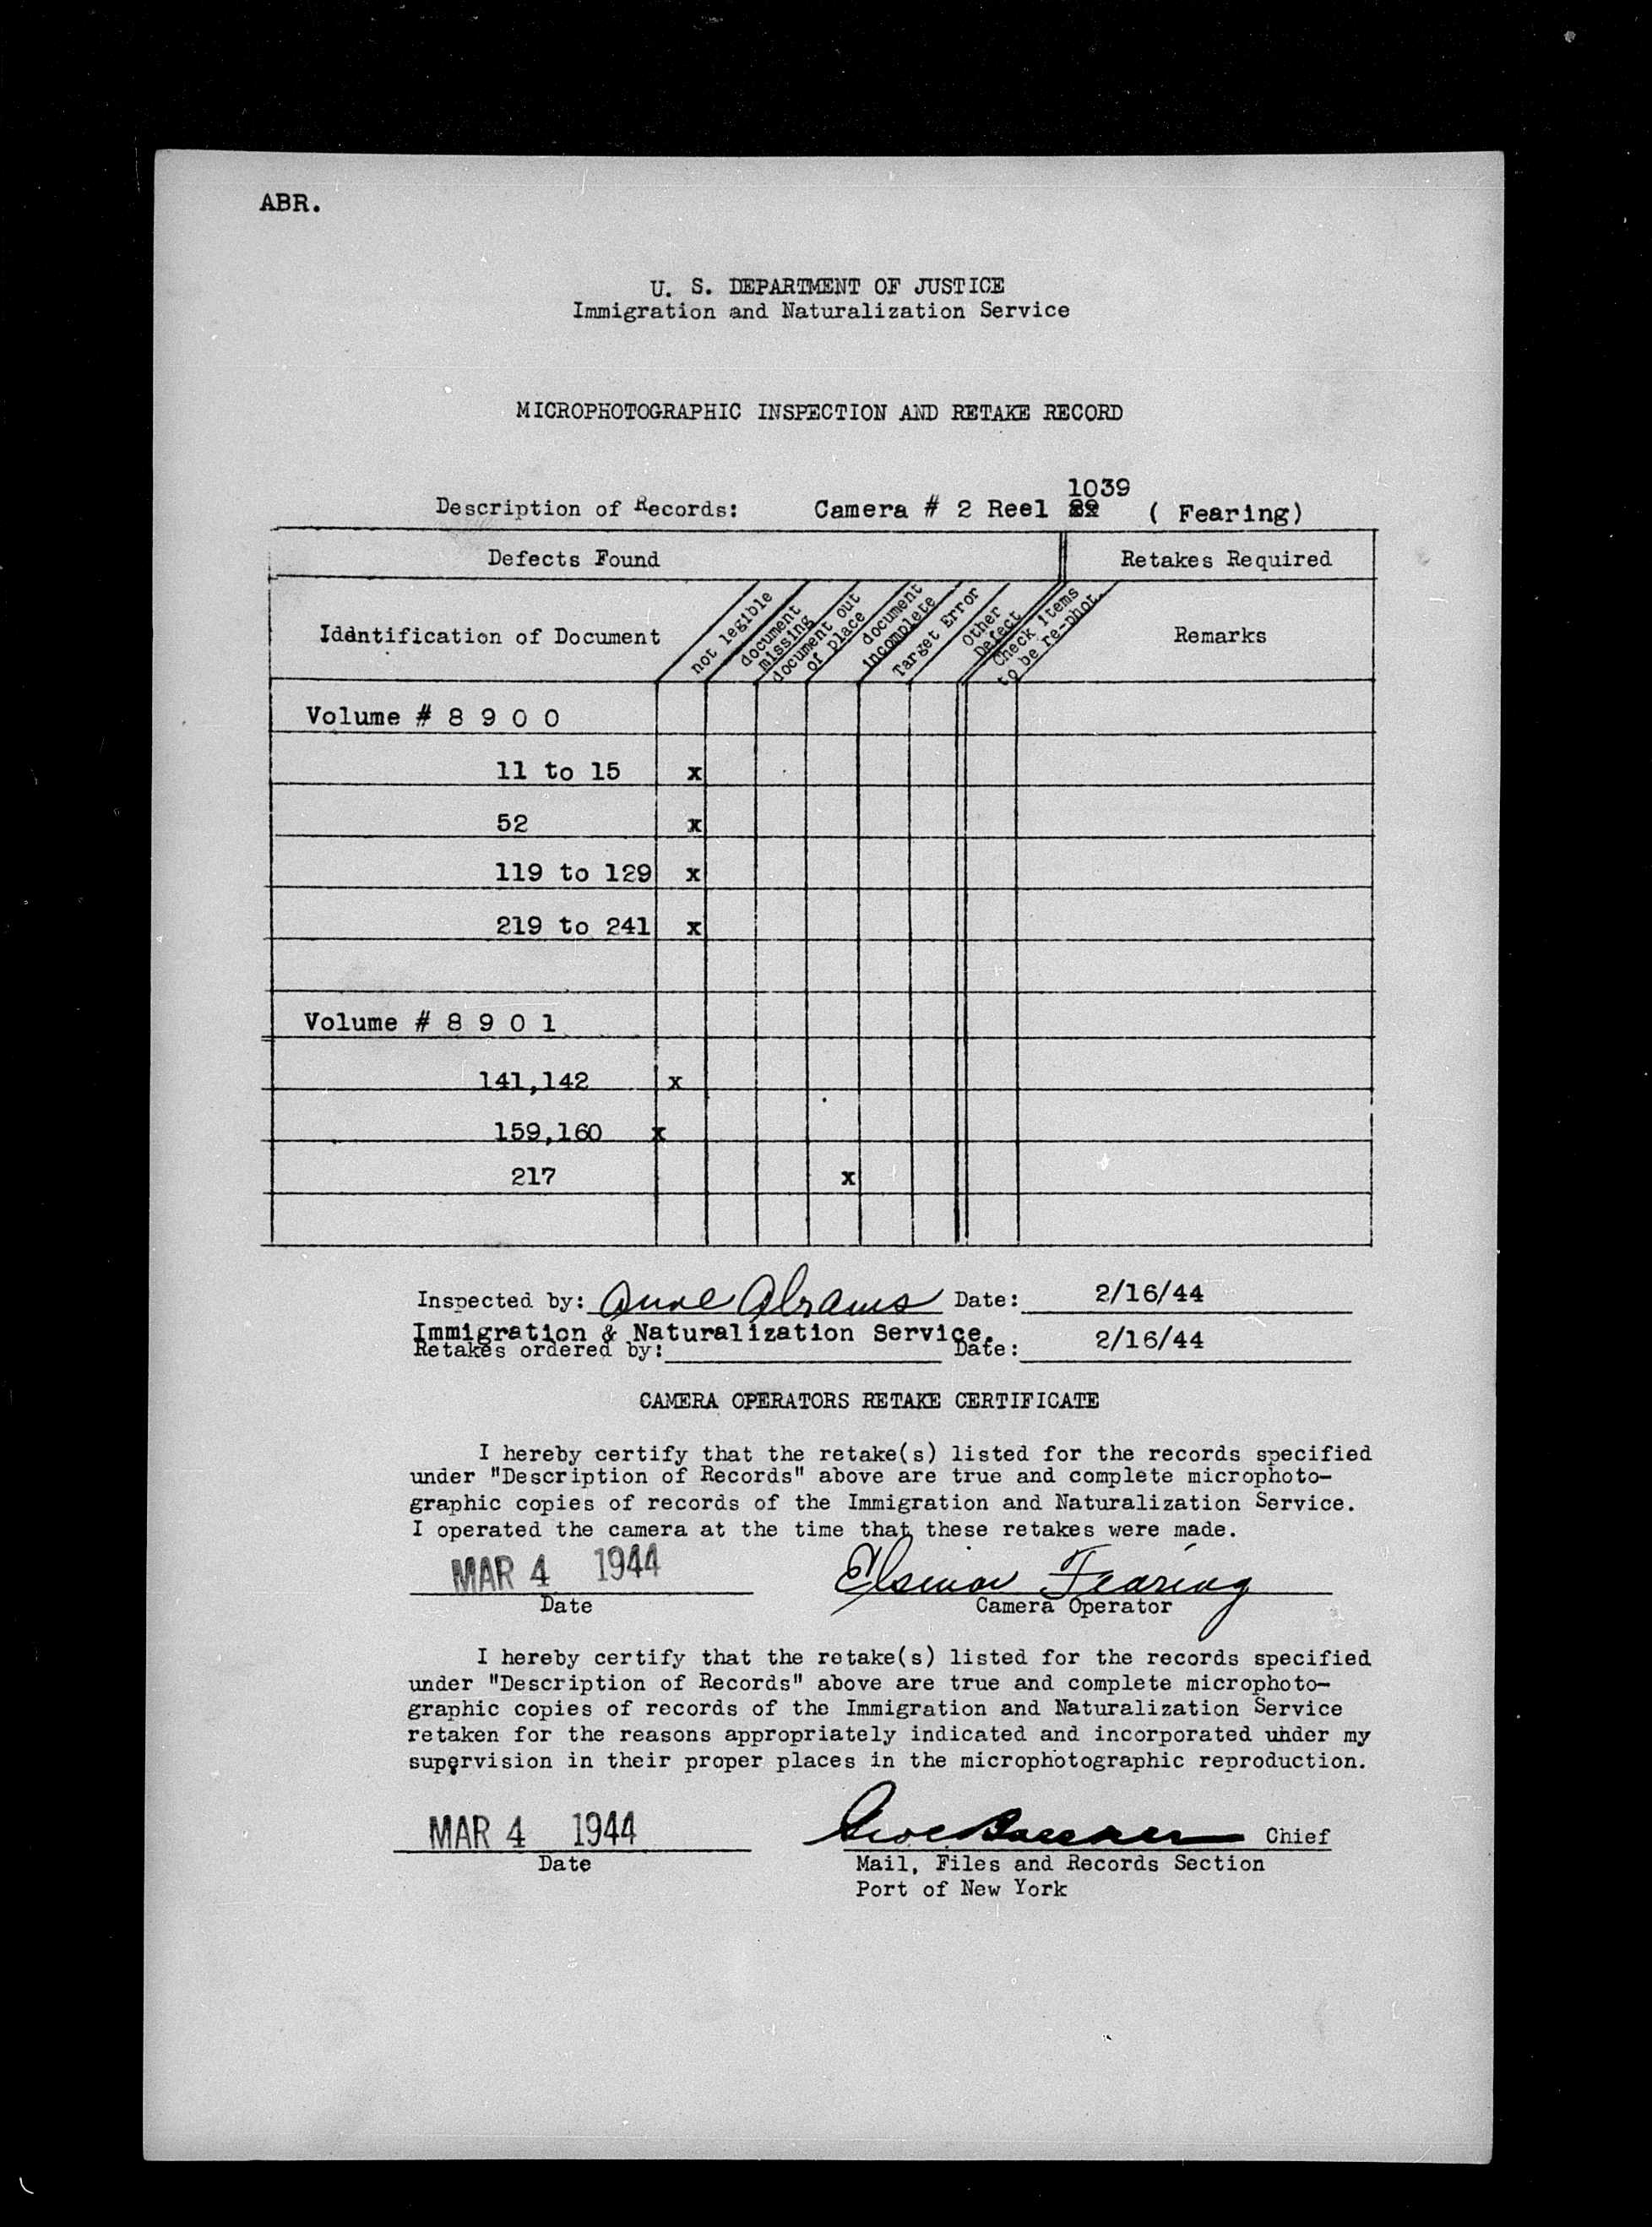 ABR.
U. S. DEPARTMENT OF JUSTICE
Immigration and Naturalization Service
MICROPHOTOGRAPHIC INSPECTION AND RETAKE RECORD
1039
Description of Records: Camera # 2 Reel ( Fearing)
Defects Found Retakes Required
Identification of Document
not legible
document missing
document out of place
document incomplete
Target Error
Other Defect
Check items to be re-phot.
Remarks
Volume # 8 9 0 0
11 to 15 x
52 x
119 to 129 x
219 to 241 x
Volume # 8 9 0 1
141,142 x
159,160 x
217 x
Inspected by: Anne Abrams Date: 2/16/44
Immigration & Naturalization Service.
Retakes ordered by: Date: 2/16/44
CAMERA OPERATORS RETAKE CERTIFICATE
I hereby certify that the retake(s) listed for the records specified
under "Description of Records" above are true and complete microphoto-
graphic copies of records of the Immigration and Naturalization Service.
I operated the camera at the time that these retakes were made.
MAR 4 1944 Elsinor Fearing
Date Camera Operator
I hereby certify that the retake(s) listed for the records specified
under "Description of Records" above are true and complete microphoto-
graphic copies of records of the Immigration and Naturalization Service
retaken for the reasons appropriately indicated and incorporated under my
supervision in their proper places in the microphotographic reproduction.
MAR 4 1944 Chief
Date Mail, Files and Records Section
Port of New York